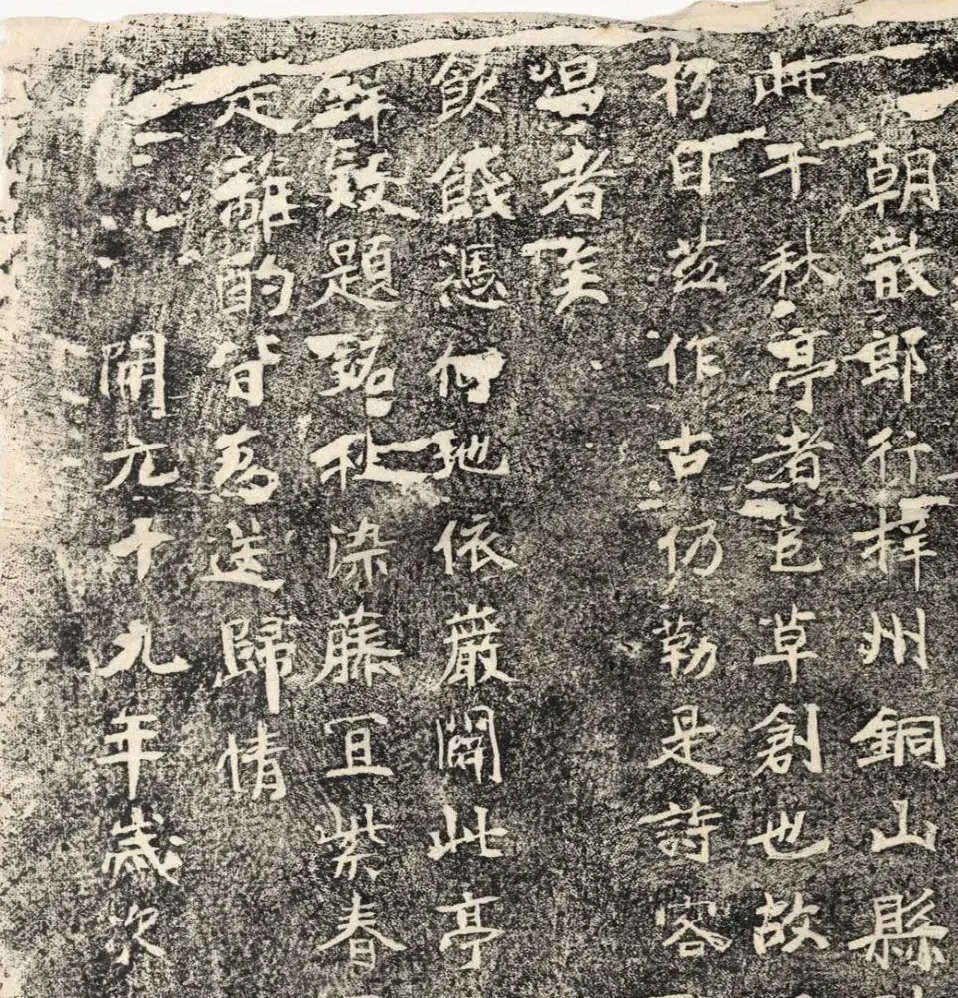 朝散郎行梓州銅山縣
此千秋亭者邑草創也故
材日茲作古仍勒是詩客
唱者矣
飲餞憑何地依巖闢此亭
題銘秋染藤冝紫春
定難酌皆為送歸情
開元十九年歲次